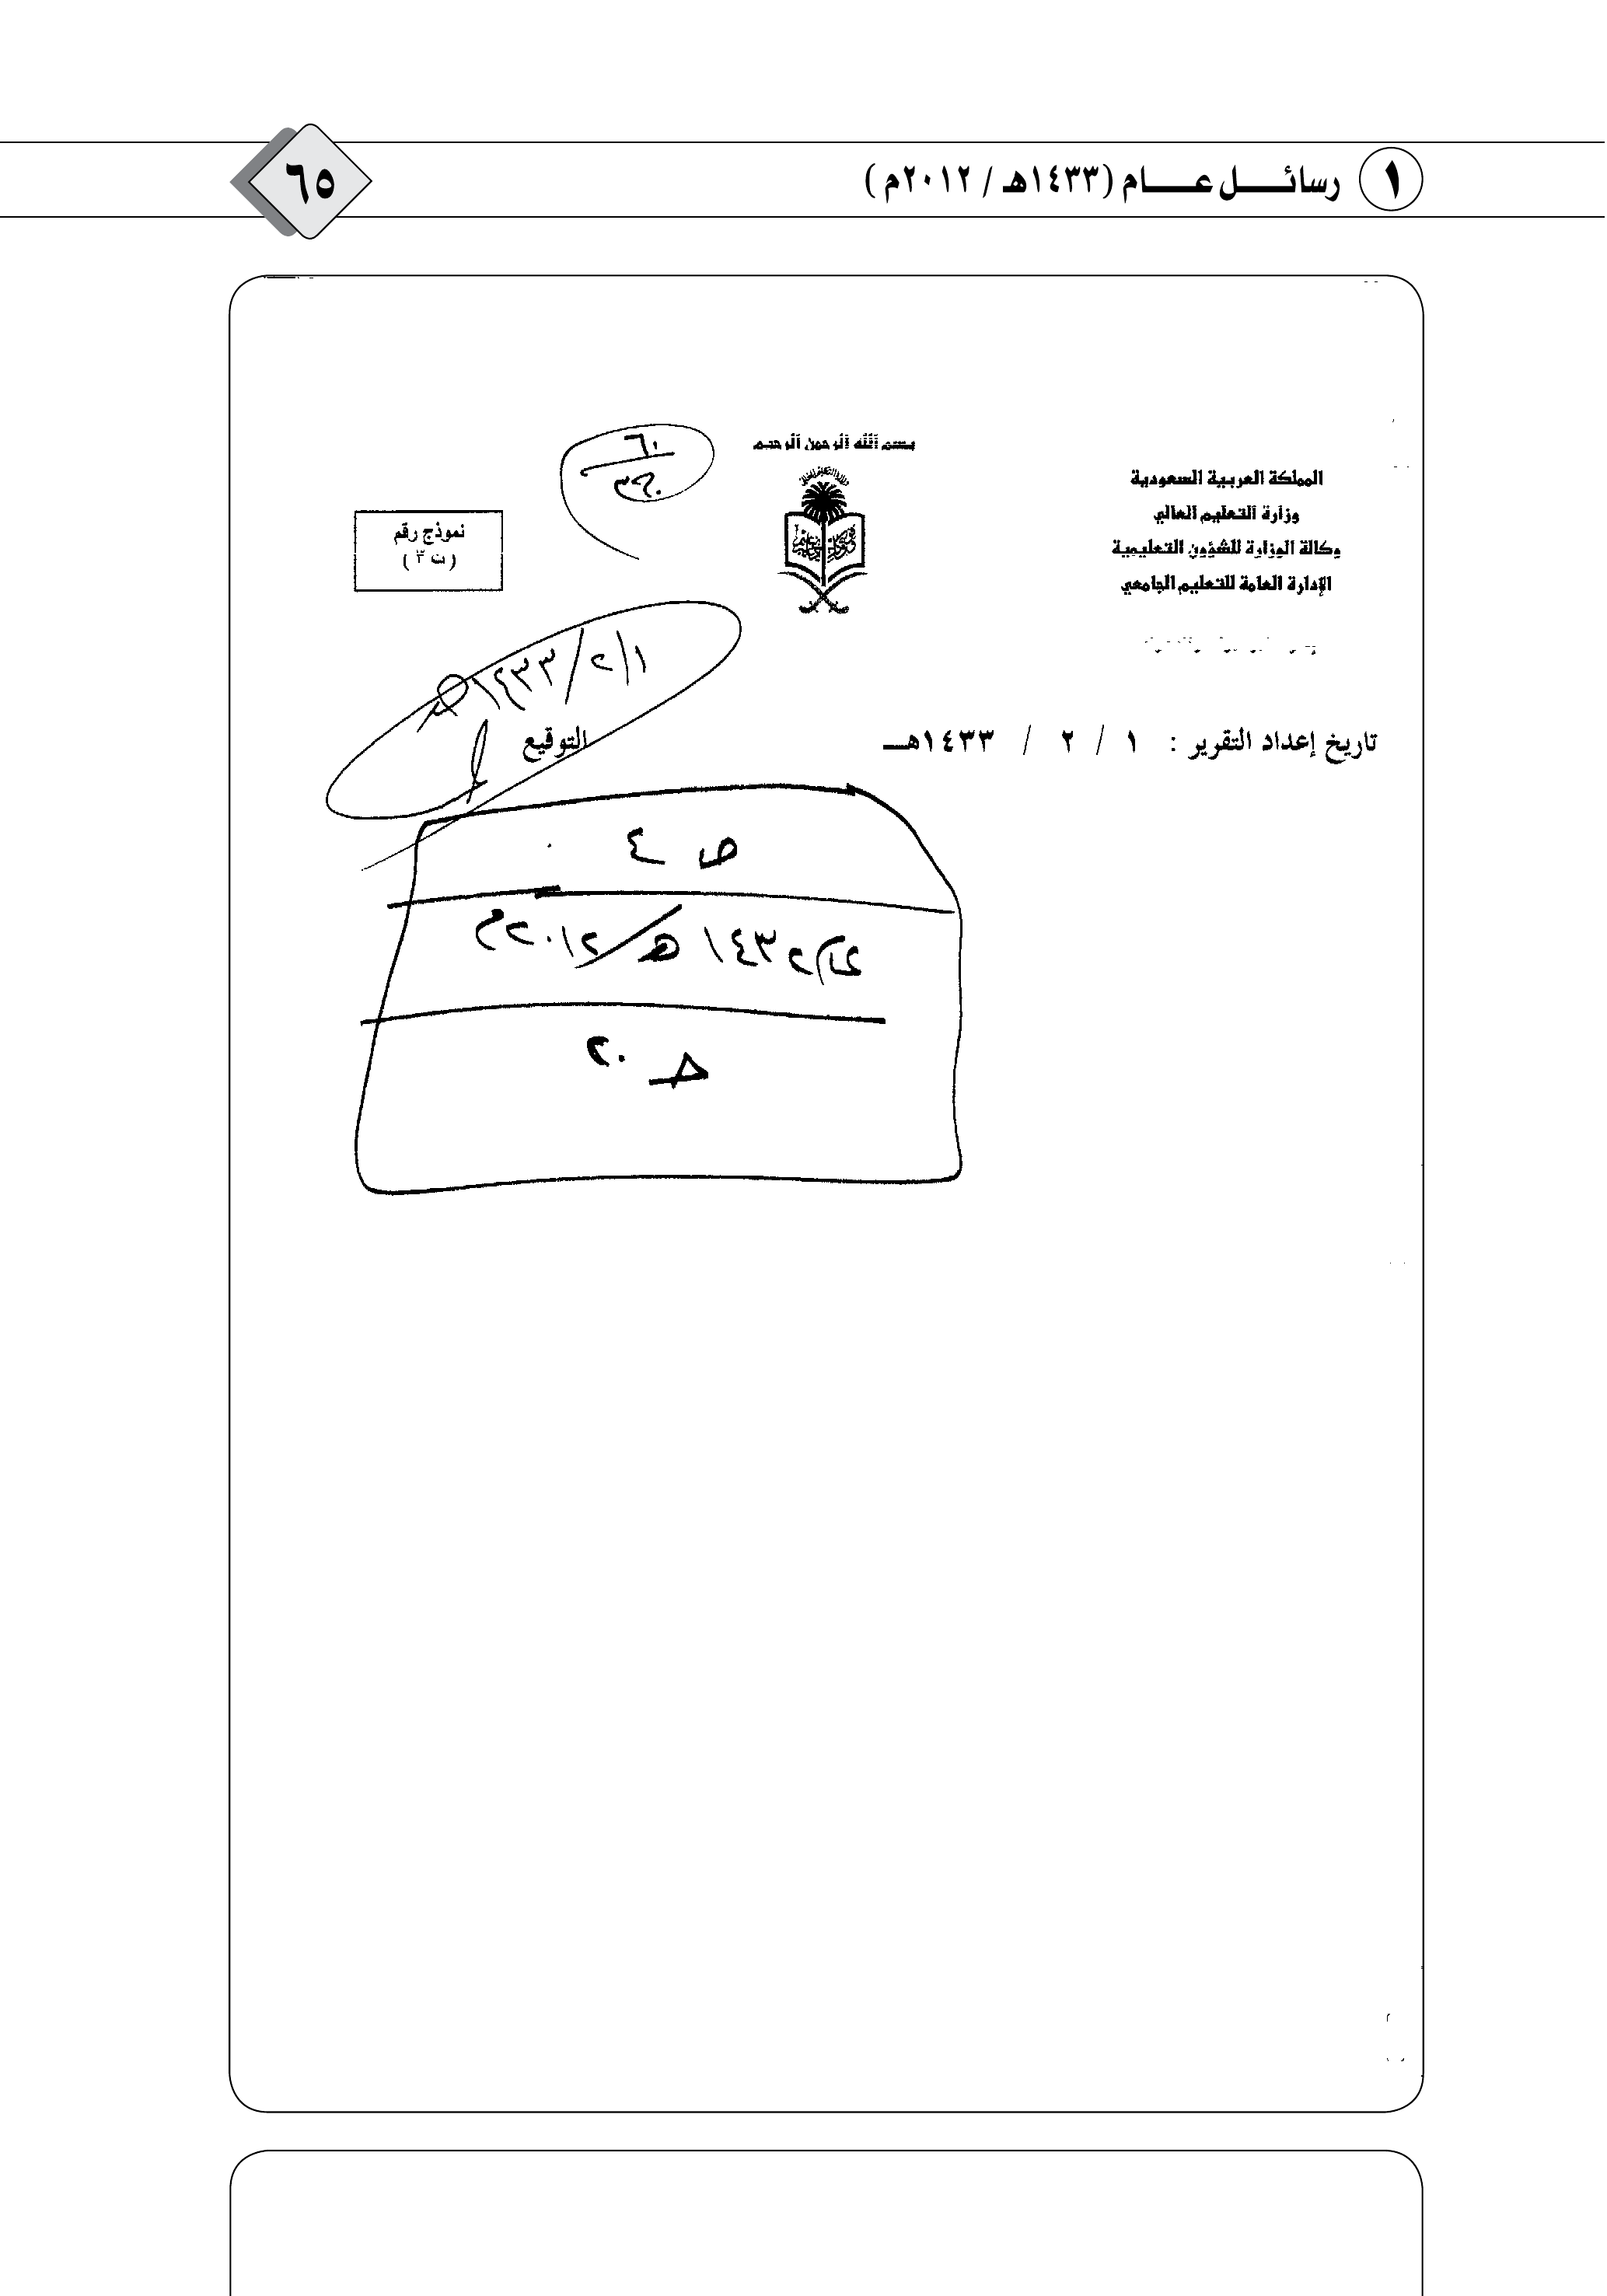 ١ رسائــــل عــــــام (١٤٣٣هـ / ٢٠١٢م)
٦٥
بسم الله الرحمن الرحيم
المملكة العربية السعودية
وزارة التعليم العالي
وكالة الوزارة للشؤون التعليمية
الإدارة العامة للتعليم الجامعي
نموذج رقم
( ت ٣ )
١/٢/١٤٣٣هـ
تاريخ إعداد التقرير : ١ / ٢ / ١٤٣٣هــ
التوقيع
ص ٤
١٤٣٣ هـ/٢٠١٢م
حـ ٢٠